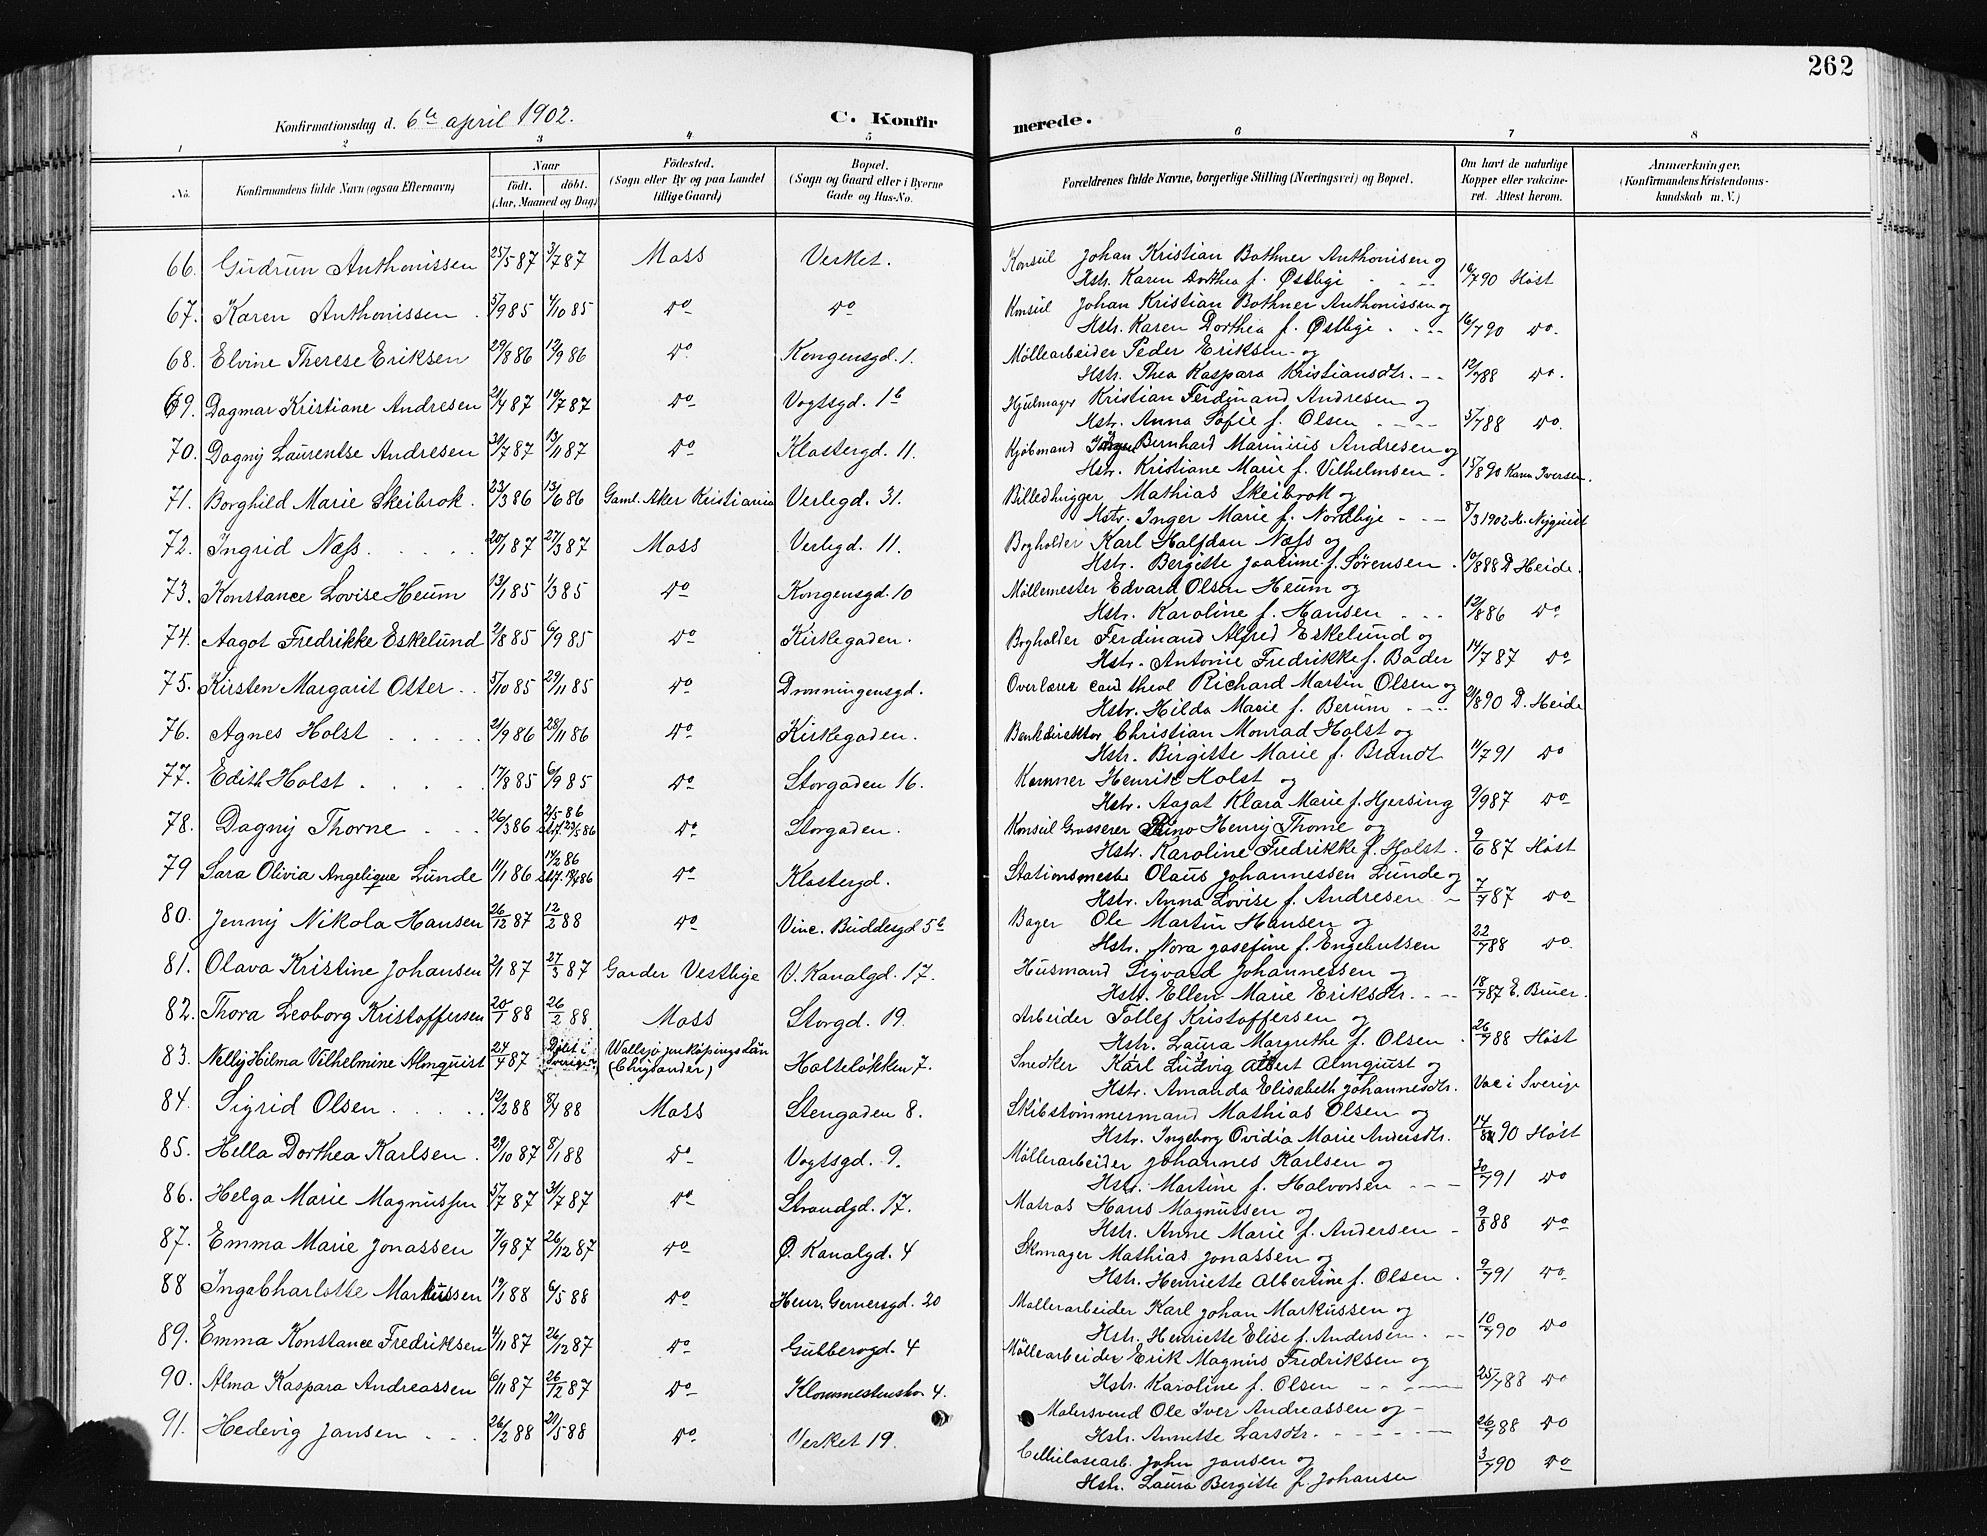 262
Konfirmationsdag d. 6te april 1902.
C. Konfirmerede.
1 2 3 4 5 6 7 8
No.
Konfirmandens fulde Navn (ogsaa Efternavn)
Naar
født. døbt.
(Aar, Maaned og Dag)
Fødested.
(Sogn eller By og paa Landet
tillige Gaard)
Bopæl.
(Sogn og Gaard eller i Byerne
Gade og Hus-No.
Forældrenes fulde Navne, borgerlige Stilling (Næringsvei) og Bopæl.
Om havt de naturlige
Kopper eller vakcine-
ret. Attest herom.
Anmærkninger.
(Konfirmandens Kristendoms-
kundskab m. V.)
66. Gudrun Anthonissen 25/5 87 3/7 87 Moss Verket. Konsul Johan Kristian Bothner Anthonisen og
Hstr. Karen Dorthea f. Østbye 16/7 90 Høst
67. Karen Anthonissen 5/9 85 4/10 85 Do Do Konsul Johan Kristian Bothner Anthonissen og
Hstr. Karen Dorthea f. Østbye 16/7 90 Do.
68. Elvine Therese Eriksen 29/8 86 12/9 86 Do Kongensgd. 1. Møllearbeider Peder Eriksen og
Hstr. Thea Kaspara Kristiansdtr. 12/7 88 Do.
69. Dagmar Kristiane Andresen 21/4 87 10/7 87 Do Vogtsgd. 1b Hjulmager Kristian Ferdinand Andresen og
Hstr. Anna Sofie f. Olsen 5/7 88 Do.
70. Dagny Laurentse Andresen 31/7 87 13/11 87 Do Klostergd. 11. Kjøbmand Bernhard Marinius Andresen og
Hstr. Kristiane Marie f. Vilhelmsen 15/8 90 Karen Iversen.
71. Borghild Marie Skeibrok 23/3 86 13/6 86 Gaml. Aker Kristiania Verlegd. 31. Billedhugger Mathias Skeibrok og
Hstr. Inger Marie f. Nordbye 8/3 1902 H. Nyquist
72. Ingrid Næss 20/1 87 27/3 87 Moss Verlegd. 11. Bogholder Karl Halfdan Næss og
Hstr. Bergitte Joakime f. Sørensen 10/8 88 D Heide.
73. Konstance Lovise Heum 13/1 85 1/3 85 Do Kongensgd. 10 Møllemester Edvard Olsen Heum og
Hstr. Karoline f. Hansen 12/8 86 Do
74. Aagot Fredrikke Eskelund 2/8 85 6/9 85 Do Kirkegaden. Bogholder Ferdinand Alfred Eskelund og
Hstr. Antonie Fredrikke f. Bader 14/7 87 Do
75. Kirsten Margarit Otter 5/10 85 29/11 85 Do Dronningensgd. Overlærer cand theol Richard Martin Olsen og
Hstr. Hilda Marie f. Berum 21/8 90 D. Heide
76. Agnes Holst 21/9 86 28/11 86 Do Kirkegaden. Bankdirektør Christian Monrad Holst og
Hstr. Birgitte Marie f. Brandt 11/7 91 Do
77. Edith Holst 17/8 85 6/9 85 Do Storgaden 16. Kemner Henrik Holst og
Hstr. Aagot Klara Marie f. Hjersing 9/9 87 Do
78. Dagny Thorne 26/3 86 2/5 86 23/5 86 Do Storgaden. Konsul Grosserer Henry Thorne og
Hstr. Karoline Fredrikke f. Holst 9/6 87 Høst
79 Sara Olivia Angelique Lunde 11/1 86 14/2 86 Do Klostergd. Stationsmester Olaus Johannessen Lunde og
Hstr. Anna Lovise f. Andresen 7/7 87 Do
80. Jenny Nikola Hansen 26/12 87 12/2 88 Do Vinc. Buddesgd 5b Bager Ole Martin Hansen og
Hstr. Nora Josefine f. Engebretsen 22/7 88 Do.
81. Olava Kristine Johansen 2/1 87 27/3 87 Garder Vestbye V. Kanalgd. 17. Husmand Sigvard Johannessen og
Hstr. Ellen Marie Eriksdtr. 18/7 87 E. Bruer.
82. Thora Leoborg Kristoffersen 20/1 88 26/2 88 Moss Storgd. 19. Arbeider Tollef Kristoffersen og
Hstr. Laura Margrethe f. Olsen 26/7 88 Høst
83. Nelly Hilma Vilhelmine Almquist 24/4 87 Døbt i Sverige Wallsjø Jønkøpings Län Holteløkken 7. Snedker Karl Ludvig Albert Almquist og
Hstr. Amanda Elisabeth Johannesdtr. Vac i Sverige
84. Sigrid Olsen 12/2 88 8/4 88 Moss Stengaden 8. Skibstømmermand Mathias Olsen og
Hstr. Ingeborg Ovidia Marie Andersdtr. 14/8 90 Høst
85. Hella Dorthea Karlsen 29/10 87 8/1 88 Do Vogtsgd. 9. Møllerarbeider Johannes Karlsen og
Hstr. Martine f. Halvorsen 20/7 91 Do
86. Helga Marie Magnussen 5/7 87 31/7 87 Do Strandgd. 17. Matros Hans Magnussen og
Hstr. Anne Marie f. Andersen 9/8 88 Do
87. Emma Marie Jonassen 7/9 87 26/12 87 Do Ø. Kanalgd. 4 Skomager Mathias Jonassen og
Hstr. Henriette Albertine f. Olsen 9/7 91 Do.
88 Inga Charlotte Markussen 19/1 88 6/5 88 Do Henr. Gernersgd. 20 Møllerarbeider Karl Johan Markussen og
Hstr. Henriette Elise f. Andersen 10/7 90 Do
89. Emma Konstance Fredriksen 4/11 87 26/12 87 Do Gulberogd. 4 Møllearbeider Erik Magnus Fredriksen og
Hstr. Karoline f. Olsen 25/7 88 Do
90. Alma Kaspara Andreassen 6/11 87 26/12 87 Do 4. Malersvend Ole Iver Andreassen og
Hstr. Annette Larsdtr. 26/7 88 Do
91. Hedevig Jansen 26/2 88 21/5 88 Do Verket 19. Cellulosearb. John Jansen og
Hstr. Laura Bergitte f. Johansen 3/7 90 Do